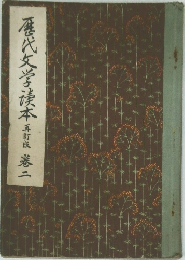 歴代文学読本 再訂版 巻二